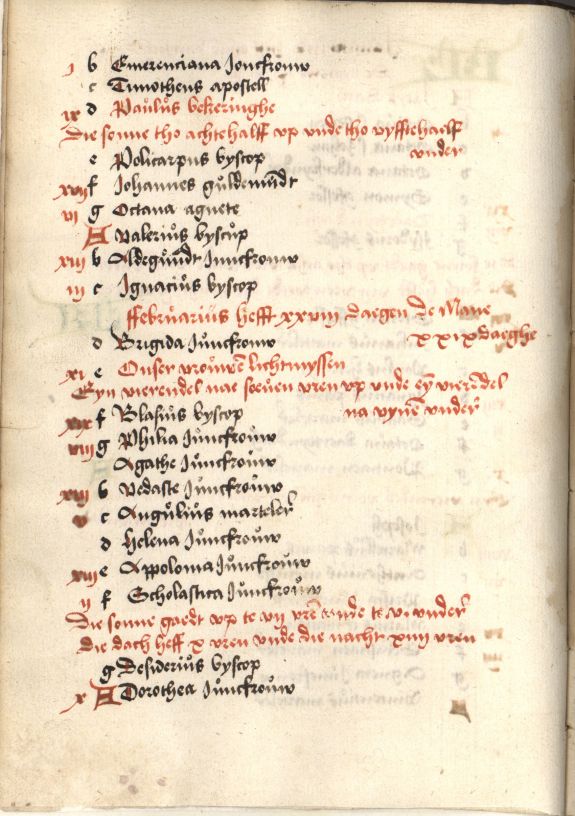 j b Emerenciana Joncfrouw
c Timotheus apostell
ix d Paulus bekeringhe
Die sonne tho achtehalff vp vnde tho vyfftehaelf
vnder
e Policarpus byscop
xvij f Johannes guldemūdt
vi g Octaua agnete
A Valerius byscup
xiiij b Aldegundt Juncfrouw
iij c Ignacius byscop
ffebruarius hefft xxviij daegen de Mane
d Brigida Juncfrouw xxix daeghe
xi e Onser vrouwen lichtmyssen
Eyn vierendel nae soeuen vren vp vnde ey vierēdel
xix f Blasius byscop na vyuen vnder
viij g Philia Juncfrouw
Agathe Juncfrouw
xvi b Vedaste Juncfrouw
v c Angulius marteler
d Helena Juncfrouw
xiij e Appolonia Juncfrouw
ij f Scholastica Juncfrouw
Die sonne gaedt vp te vij vrē vnde te v vnder
die dach heff x vren vnde die nacht xiiij vren
g Desiderius byscop
x A Dorothea Juncfrouw